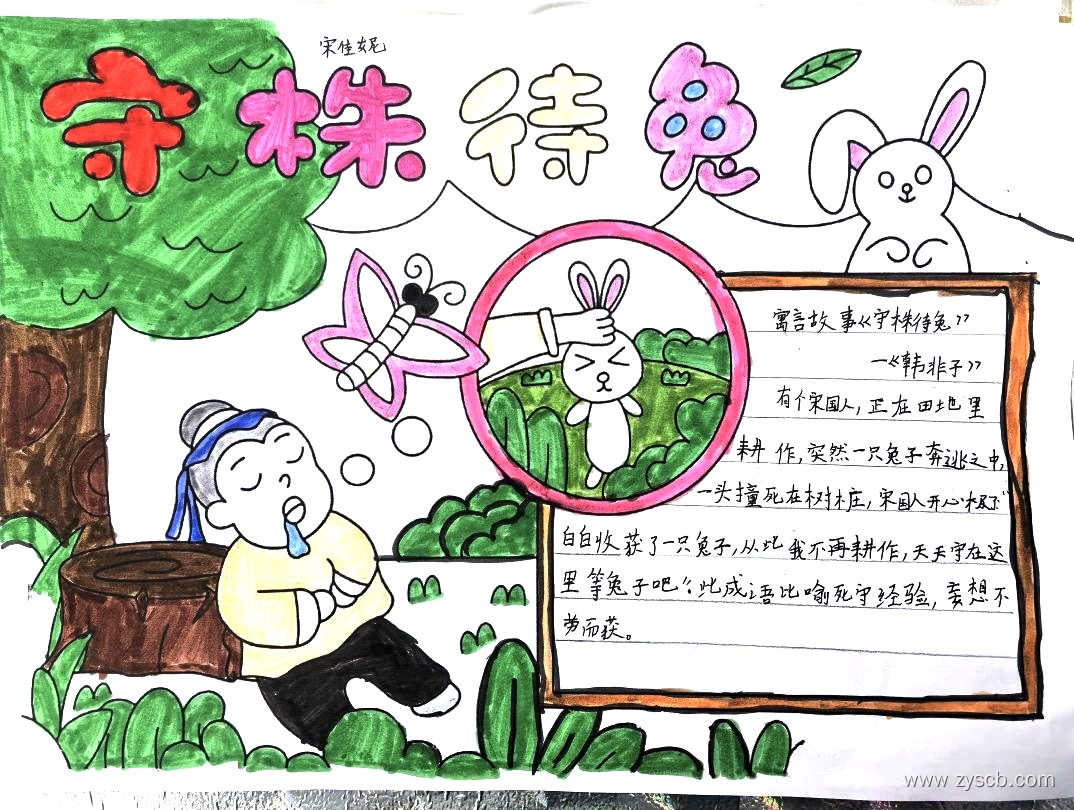 宋佳妮
守株待兔
寓言故事《守株待兔》
—《韩非子》
有个宋国人，正在田地里
耕作，突然一只兔子奔逃之中，
一头撞死在树桩，宋国人开心极了"
白白收获了一只兔子，从此我不再耕作，天天守在这
里等兔子吧"：此成语比喻死守经验，妄想不
劳而获。
www.zyscb.com